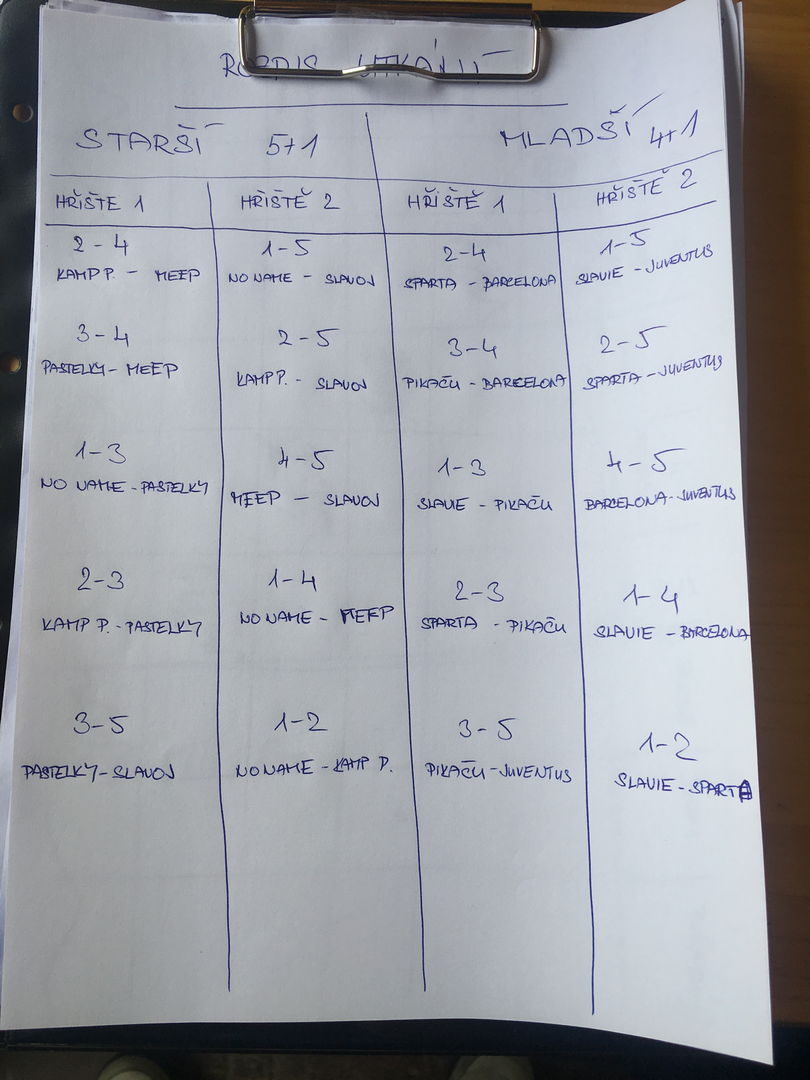 ROZPIS UTKÁNÍ
STARŠÍ 5+1
MLADŠÍ 4+1
HŘIŠTE 1
HŘIŠTĚ 2
HŘIŠTĚ 1
HŘIŠTĚ 2
2-4
KAMP P. - MEEP
1-5
NO NAME - SLAVOJ
2-4
SPARTA - BARCELONA
1-5
SLAVIE - JUVENTUS
3-4
PASTELKY - MEEP
2-5
KAMP P. - SLAVOJ
3-4
PIKAČU - BARCELONA
2-5
SPARTA - JUVENTUS
1-3
NO NAME - PASTELKY
4-5
MEEP - SLAVOJ
1-3
SLAVIE - PIKAČU
4-5
BARCELONA - JUVENTUS
2-3
KAMP P. - PASTELKY
1-4
NO NAME - MEEP
2-3
SPARTA - PIKAČU
1-4
SLAVIE - BARCELONA
3-5
PASTELKY - SLAVOJ
1-2
NO NAME - KAMP P.
3-5
PIKAČU - JUVENTUS
1-2
SLAVIE - SPARTA